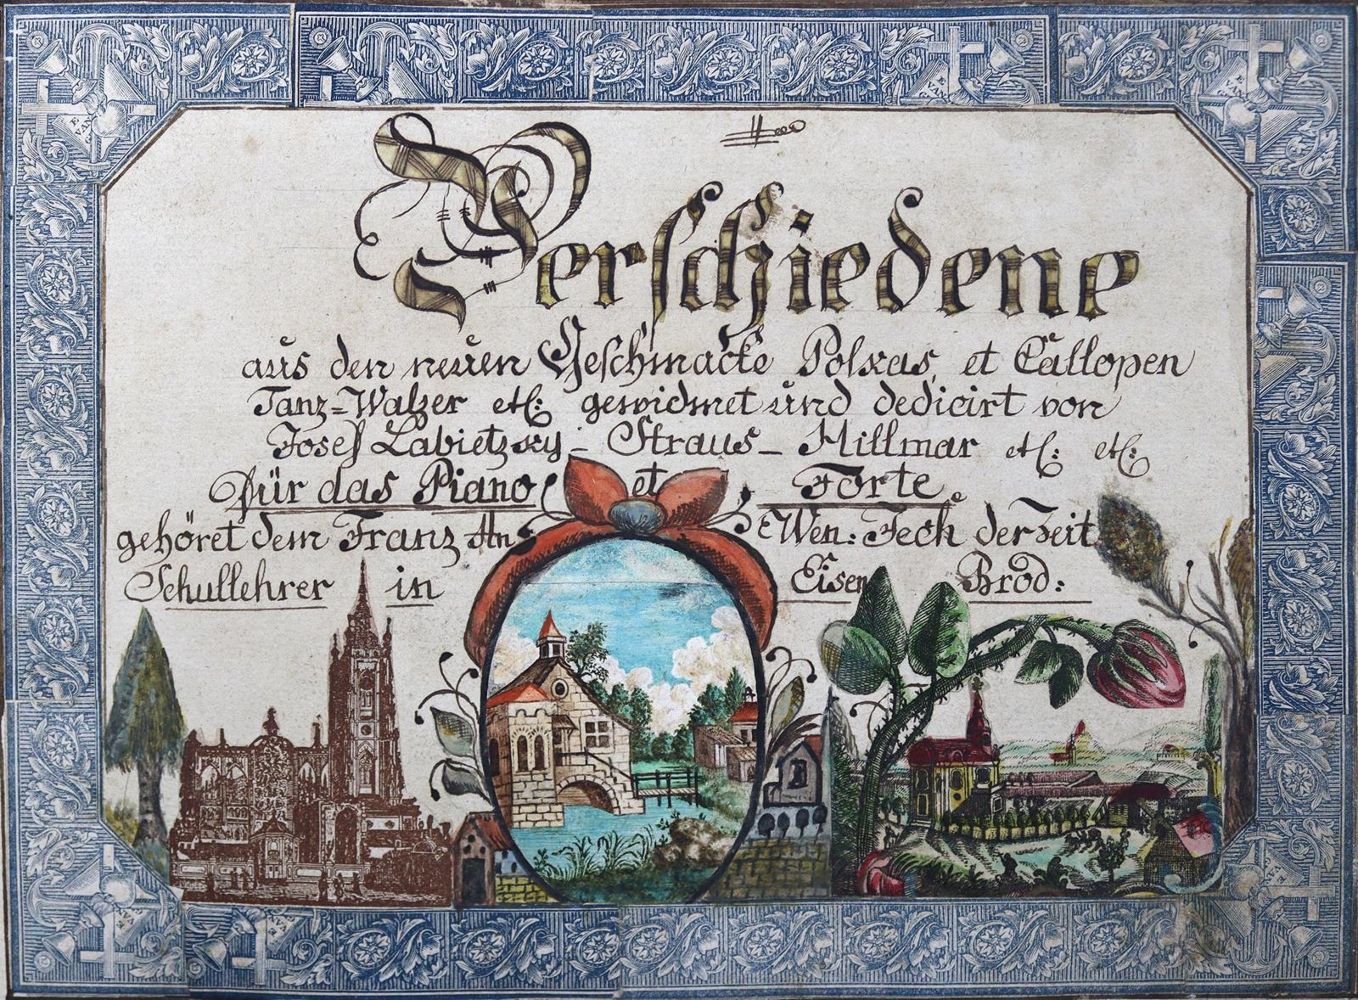 Verschiedene
aus den neuen Geschmacke Polkas, et Callopen
Tanz=Walzer etc: gewidmet und dedicirt von
Josef Labietzky – Straus – Hillmar etc: etc:
Für das Piano et Forte
gehöret dem Franz An Wen: Fech der Zeit
Schullehrer in Eisen Brod: